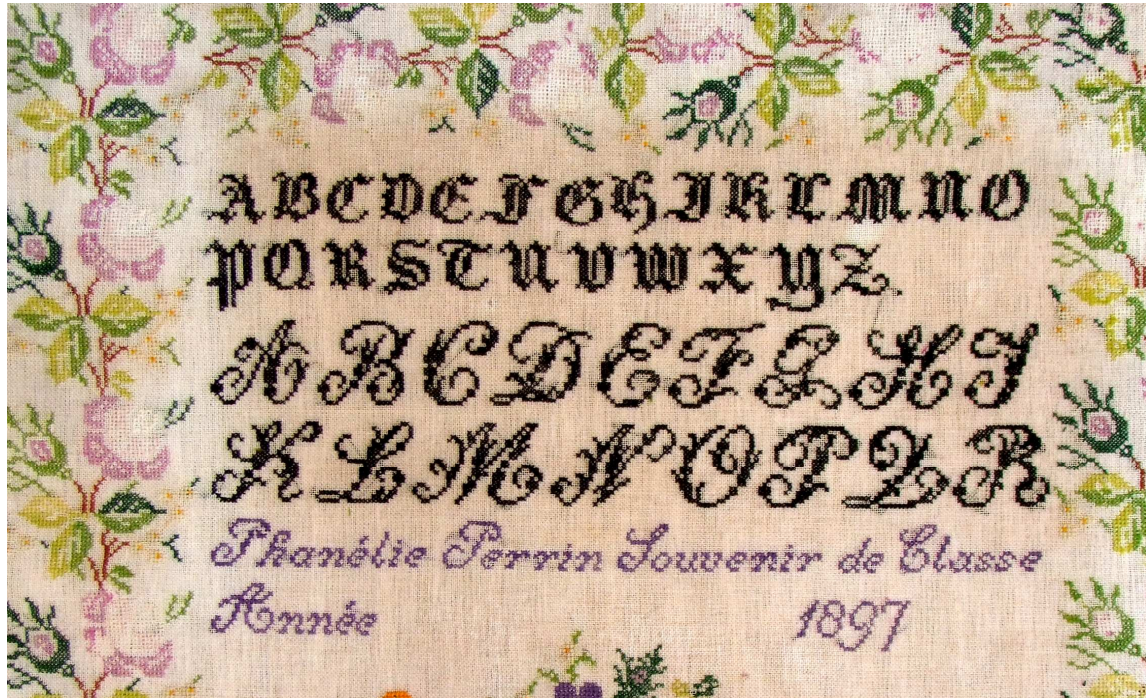 A B C D E F G H I K L M N O
P Q R S T U V W X Y Z
A B C D E F G H I
K L M N O P Q R
Phanélie Perrin Souvenir de Classe
Année 1897